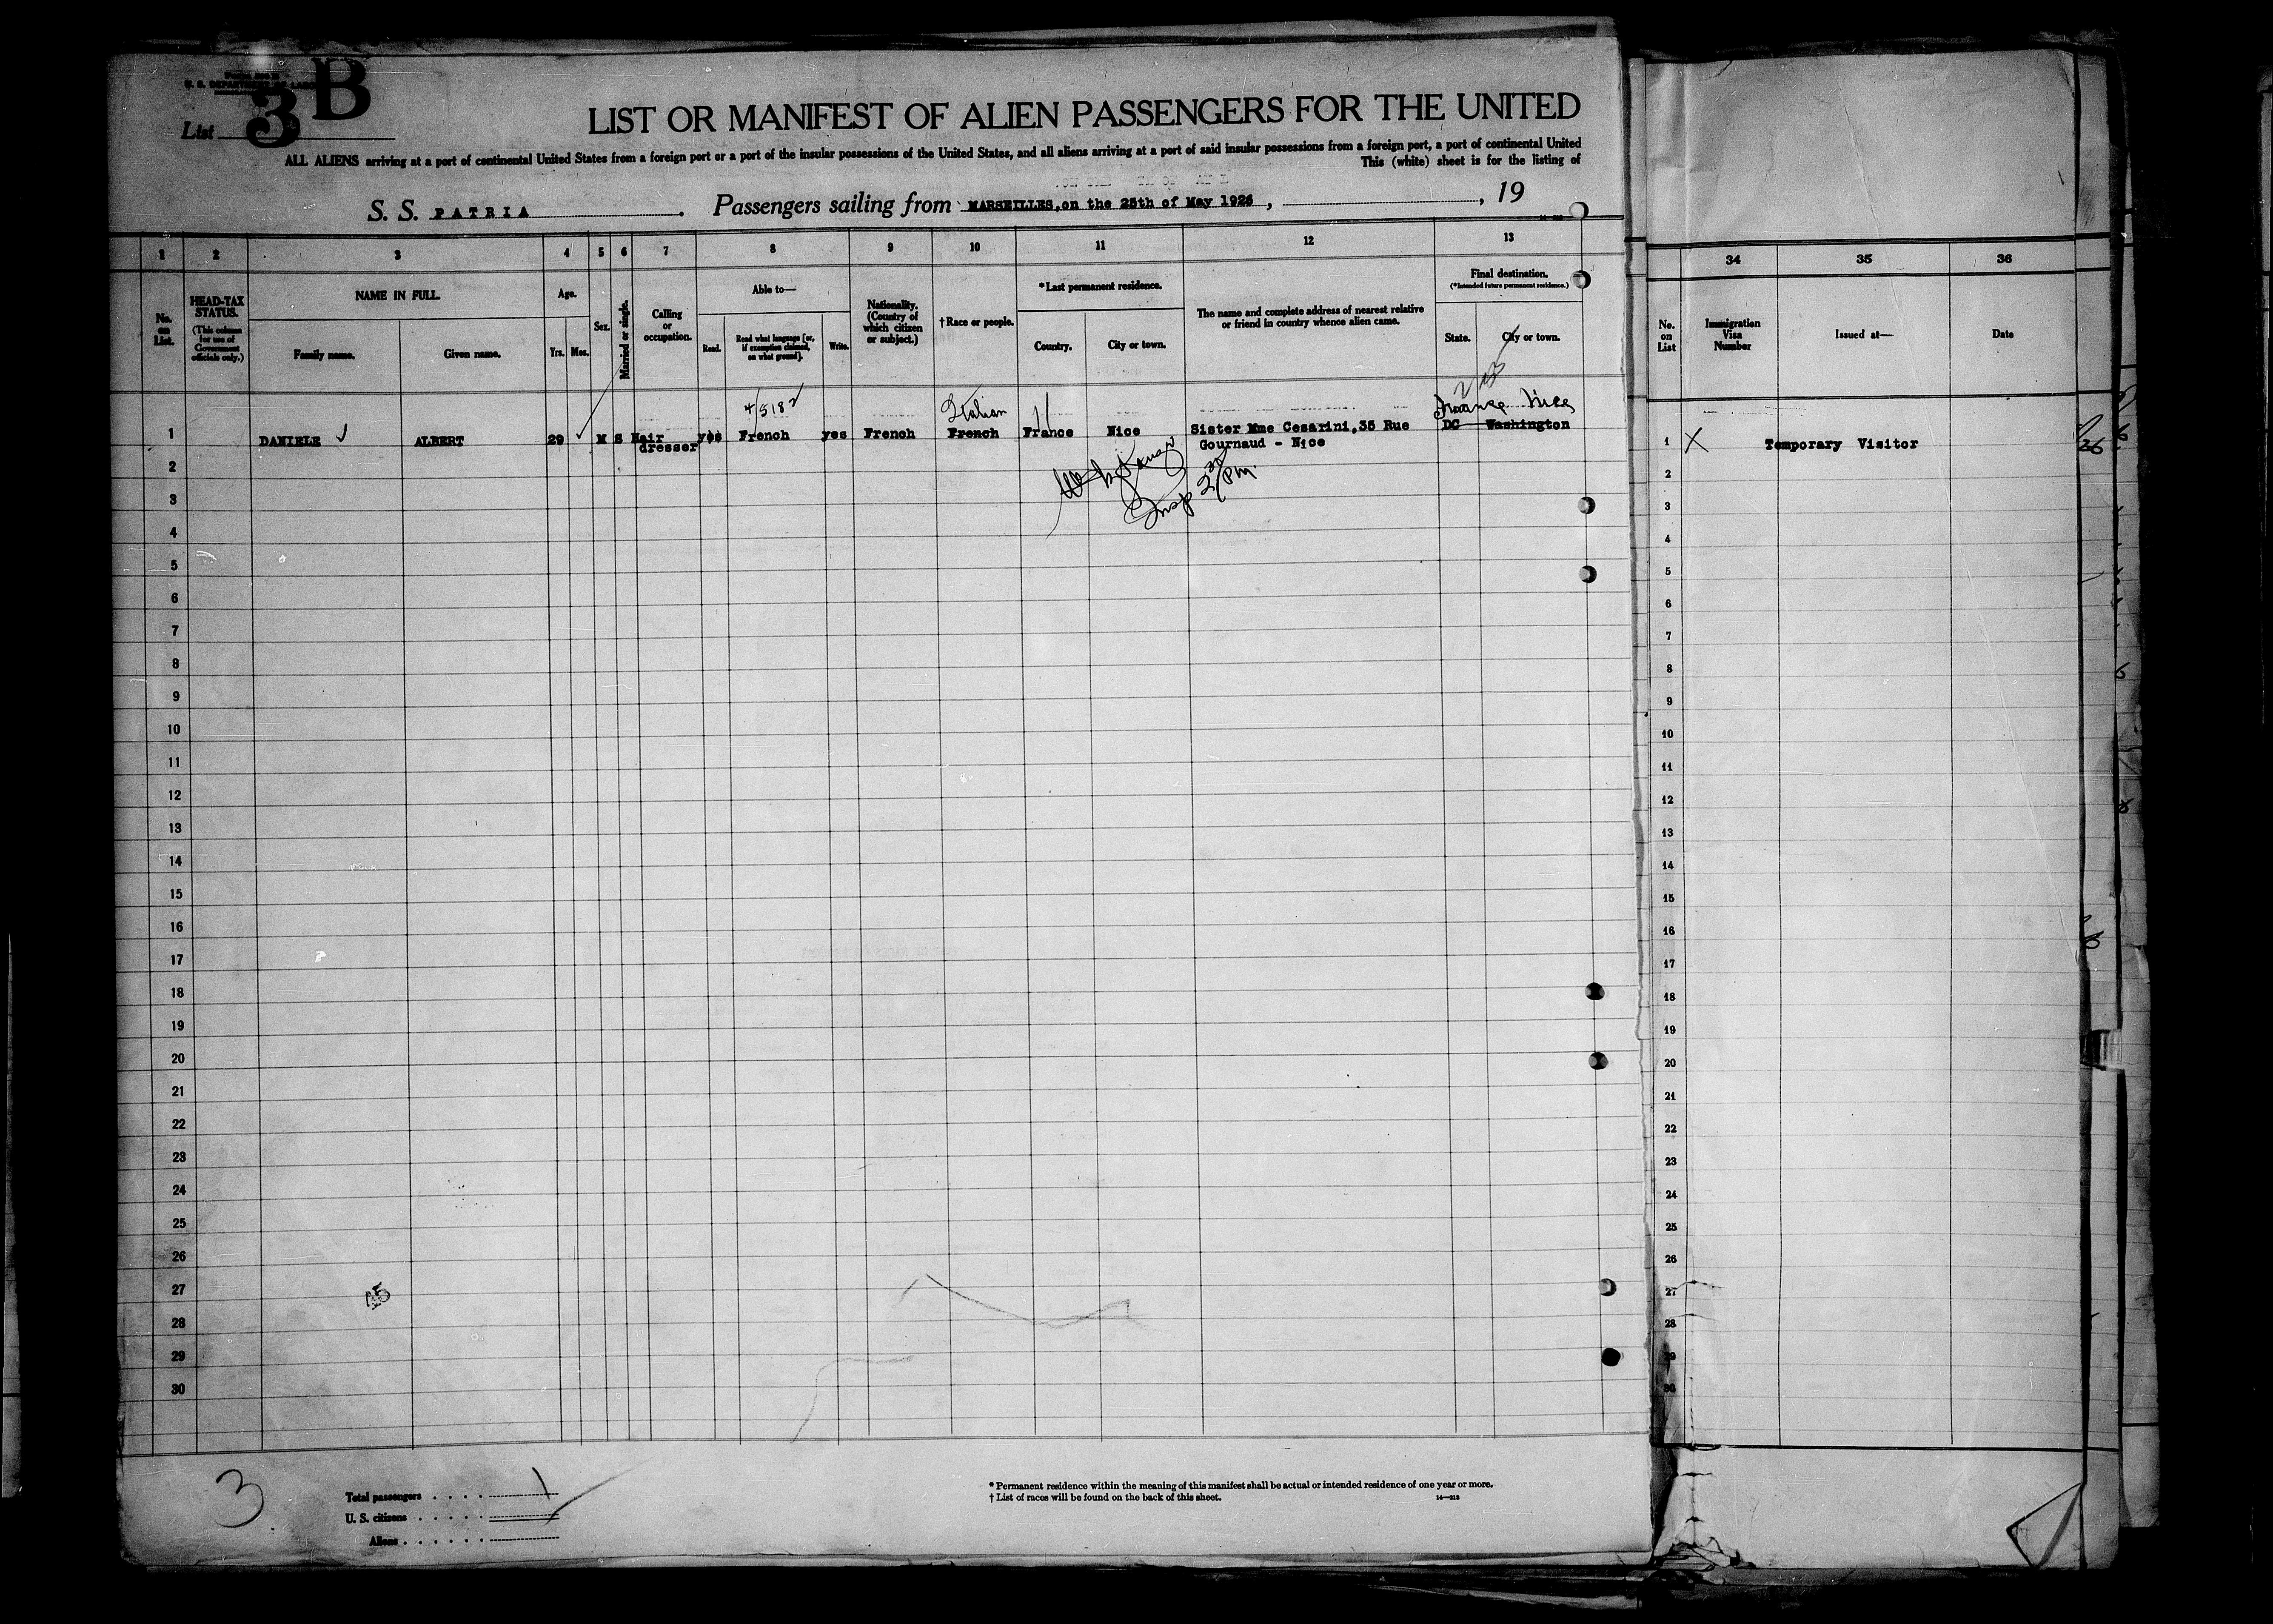 Form 500 B
U. S. DEPARTMENT OF LABOR
List 3 B
LIST OR MANIFEST OF ALIEN PASSENGERS FOR THE UNITED
ALL ALIENS arriving at a port of continental United States from a foreign port or a port of the insular possessions of the United States, and all aliens arriving at a port of said insular possessions from a foreign port, a port of continental United
This (white) sheet is for the listing of
S. S. PATRIA. Passengers sailing from MARSEILLES, on the 25th of May 1926, , 19
1 2 3 4 5 6 7 8 9 10 11 12 13
No. on List.
HEAD-TAX STATUS.
(This column for use of Government officials only.)
NAME IN FULL.
Family name.
Given name.
Age.
Yrs. Mos.
Sex.
Married or single.
Calling or occupation.
Able to—
Read.
Read what language [or, if exemption claimed, on what ground].
Write.
Nationality. (Country of which citizen or subject.)
†Race or people.
*Last permanent residence.
Country.
City or town.
The name and complete address of nearest relative or friend in country whence alien came.
Final destination.
(*Intended future permanent residence.)
State.
City or town.
34 35 36
No. on List
Immigration Visa Number
Issued at—
Date
4/5182
Italian
France Nice
1 DANIELE ALBERT 29 M S Hair yes French yes French French France Nice Sister Mme Cesarini, 35 Rue DC Washington
dresser Gournaud - Nice
1 X Temporary Visitor
Insp 2 30 PM
2
3
4
5
6
7
8
9
10
11
12
13
14
15
16
17
18
19
20
21
22
23
24
25
26
27
28
29
30
2
3
4
5
6
7
8
9
10
11
12
13
14
15
16
17
18
19
20
21
22
23
24
25
26
27
28
29
30
3
Total passengers . . . . 1
U. S. citizens . . . . .
Aliens . . . . . .
* Permanent residence within the meaning of this manifest shall be actual or intended residence of one year or more.
† List of races will be found on the back of this sheet.
14—213